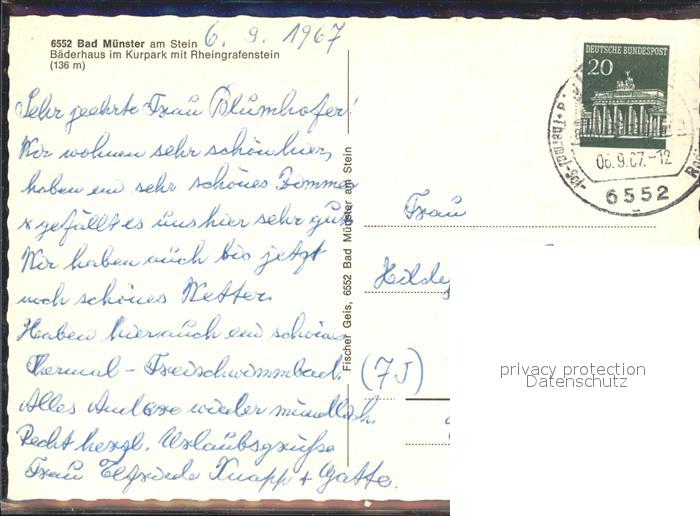 6552 Bad Münster am Stein
Bäderhaus im Kurpark mit Rheingrafenstein
(136 m)
6. 9. 1967
Sehr geehrte Frau Blumhofer!
Wir wohnen sehr schön hier,
haben ein sehr schönes Zimmer
+ gefällt es uns hier sehr gut.
Wir haben auch bis jetzt
noch schönes Wetter.
Haben hier auch ein schönes
Thermal - Freischwimmbad.
Alles Andere wieder mündlich.
Recht herzl. Urlaubsgrüße
Frau Elfriede Knapp + Gatte.
Fischer Geis, 6552 Bad Münster am Stein
DEUTSCHE BUNDESPOST
20
06.9.67.-12
6552
Frau
Hilde
(7J)
privacy protection
Datenschutz